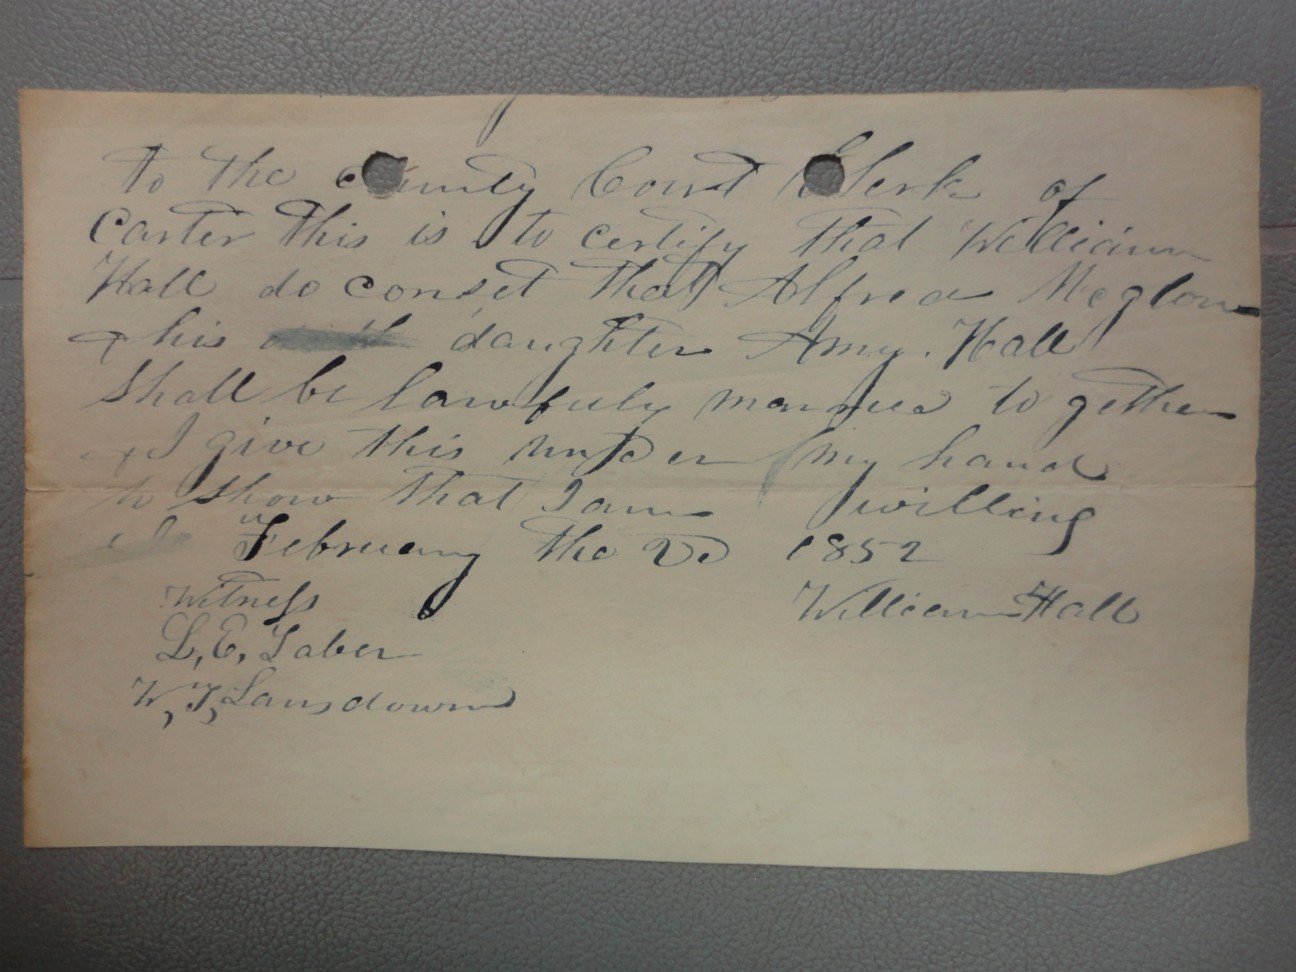 to the county Court Clerk of
Carter this is to certify that William
Hall do conset that Alfred Meglon
& his daughter Amy. Hall
Shall be lawfuly married to gether
& I give this under my hand
to show that I am willing
February the 2d 1852
Witness William Hall
L, E, Taber
W, T, Lansdown